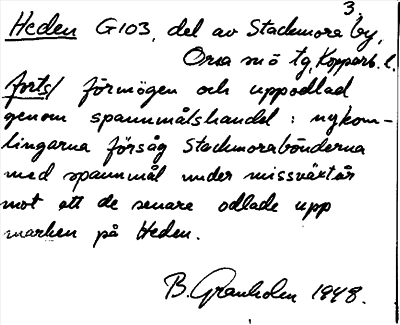 3.
Heden G103, del av Stackmora by,
Orsa sn ö tg, Kopparb. l.
forts/ förmögen och uppodlad
genom spannmålshandel: nykom-
lingarna försåg Stackmorabönderna
med spannmål under missväxtår
mot att de senare odlade upp
marken på Heden.
B. Granholm 1948.